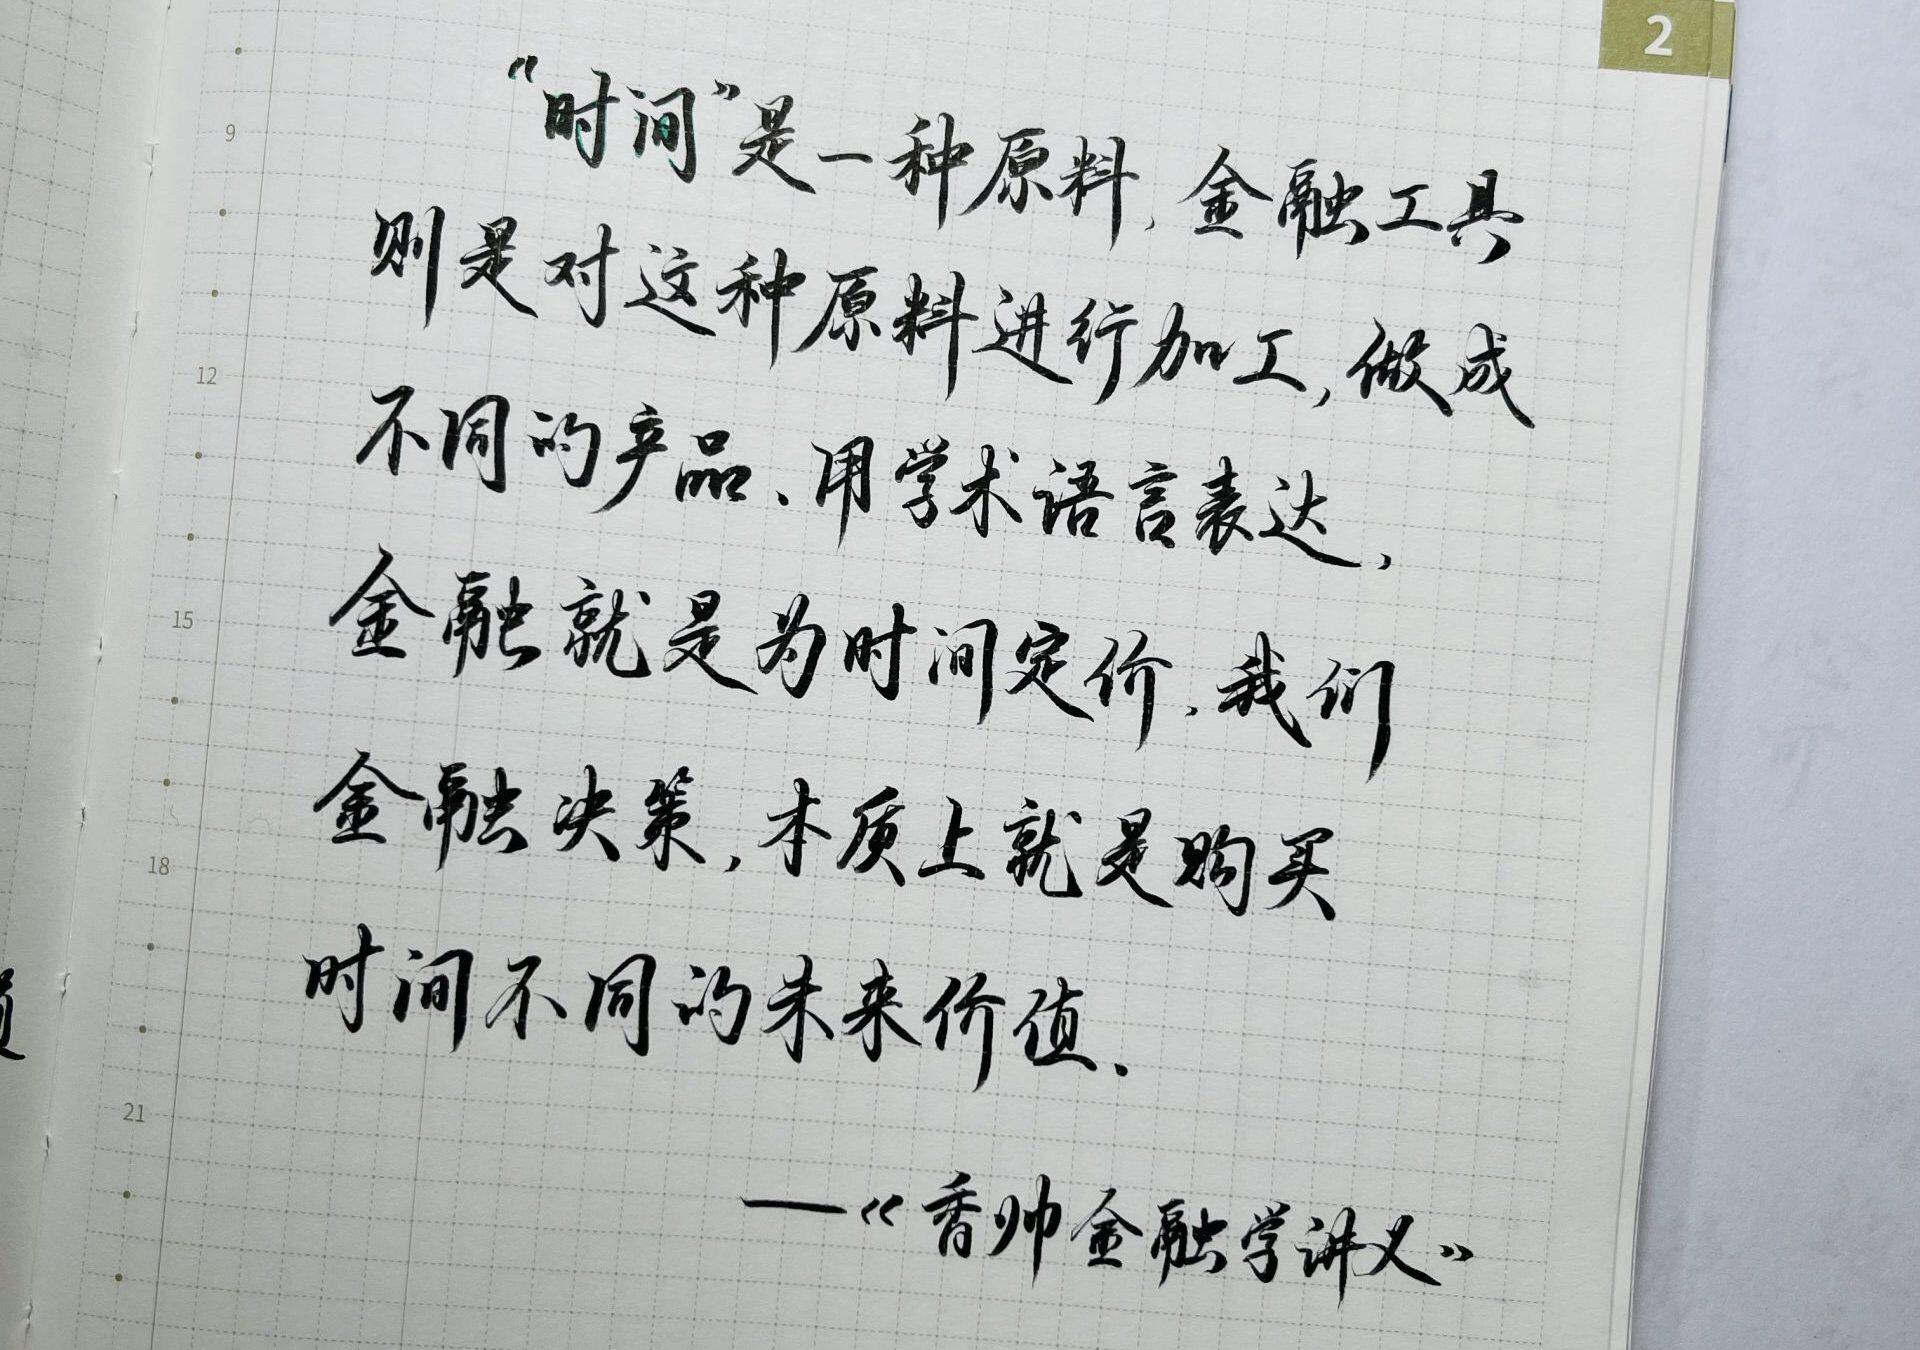 2
“时间”是一种原料,金融工具
则是对这种原料进行加工,做成
不同的产品、用学术语言表达,
金融就是为时间定价,我们
金融决策,本质上就是购买
时间不同的未来价值.
—《香帅金融学讲义》
9
12
15
18
21